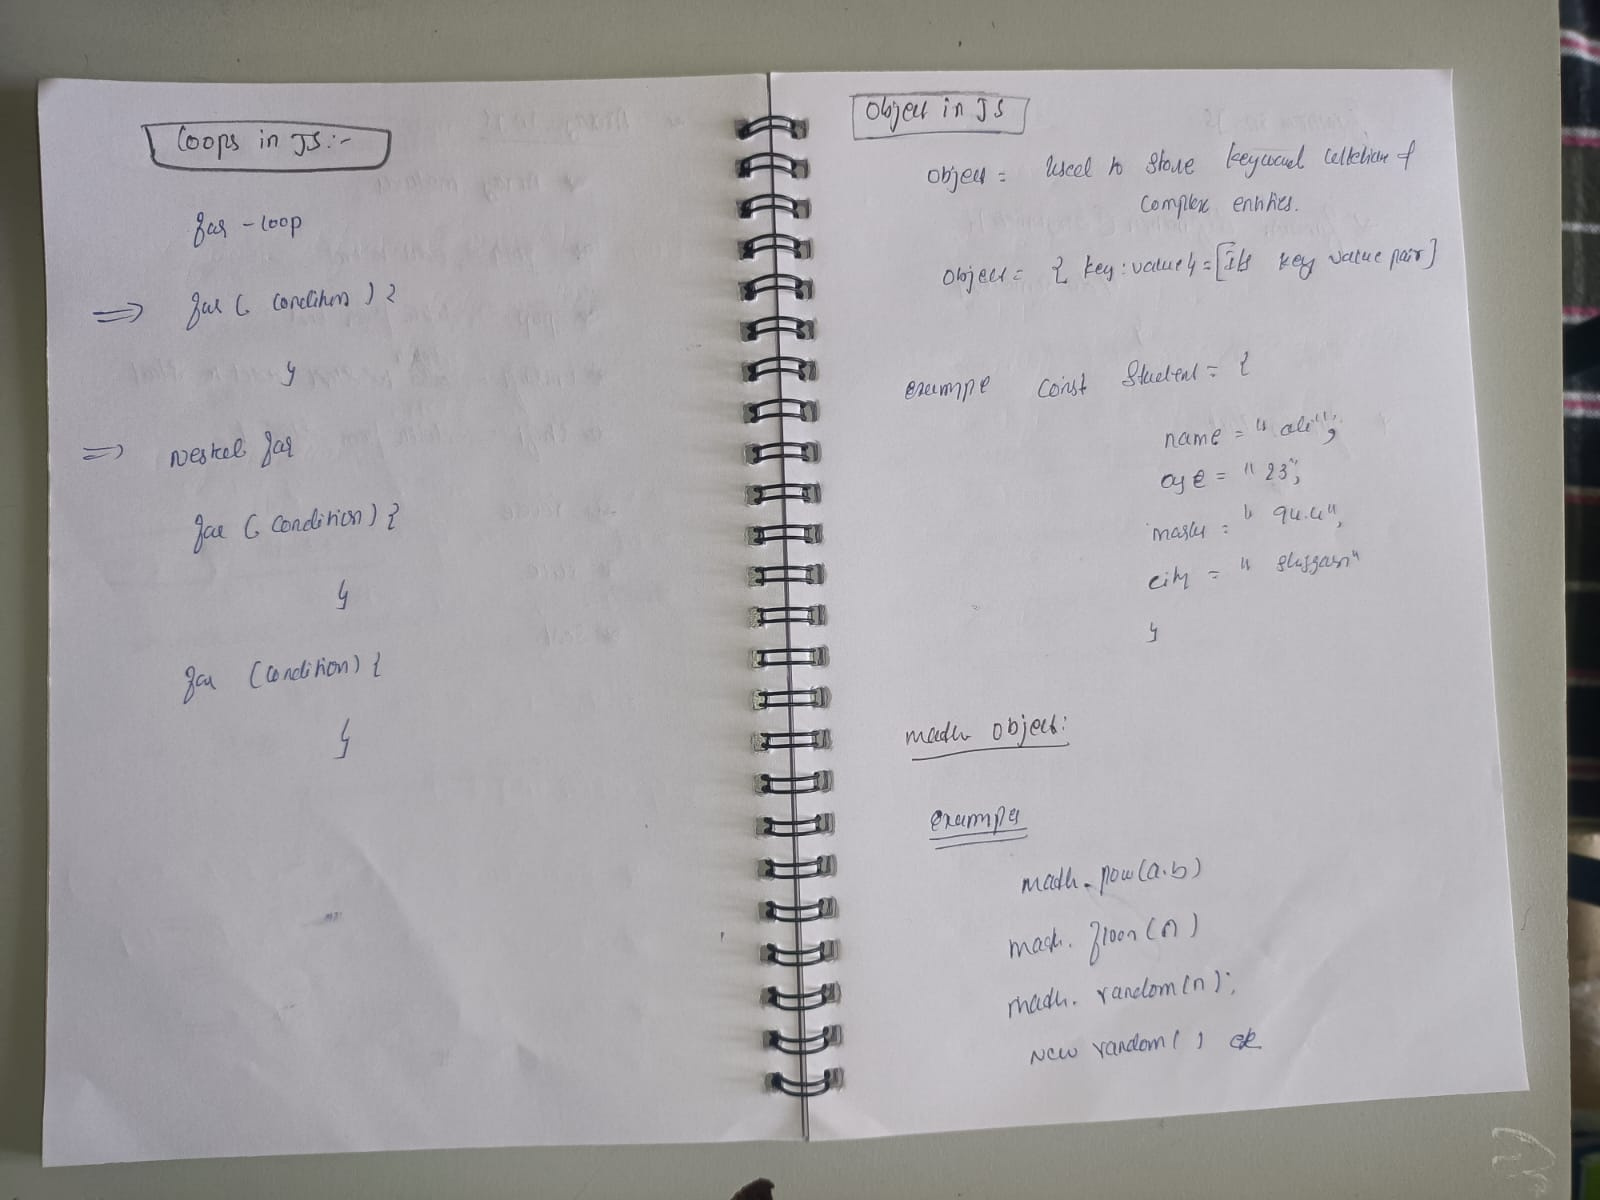 Loops in JS :-
for - loop
⇒ for ( condition ) {
}
⇒ Nested for
for ( condition ) {
}
for (condition) {
}
Object in JS
Object = Used to store keyword collection of
complex entities.
Object = { key : value } = [Its key value pair]
example const Student = {
name = " ali ",
age = " 23",
marks =
city = "
}
math object:
example
math. pow(a.b)
math. floor (n)
math. random(n);
New random( )